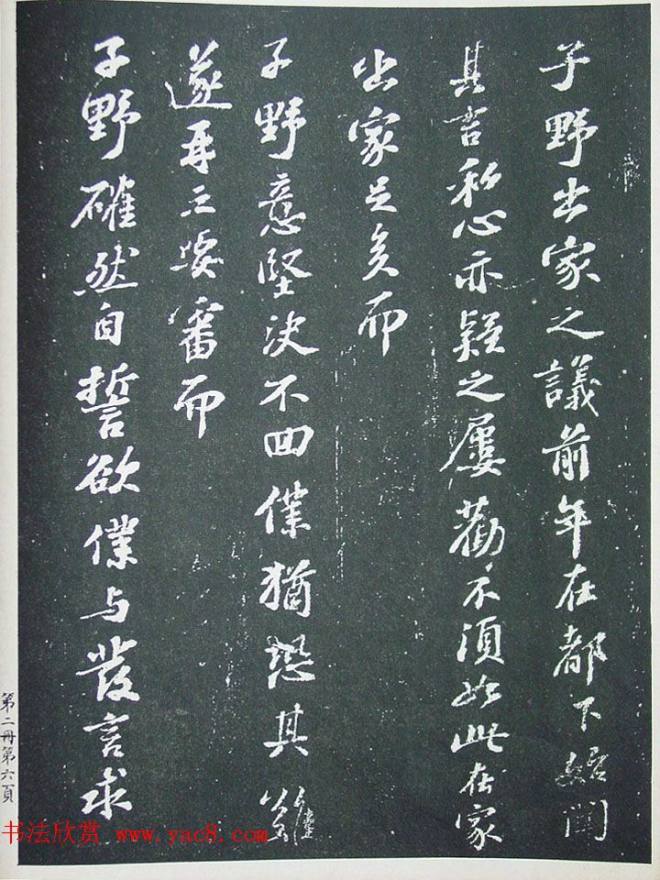 子野出家之議前年在都下始聞
其言私心亦疑之屢勸不須如此在家
出家足矣而
子野意堅決不回僕猶恐其難
遂再三要審而
子野確然自誓欲僕与發言求
第二冊第六頁
书法欣赏 www.yac8.com